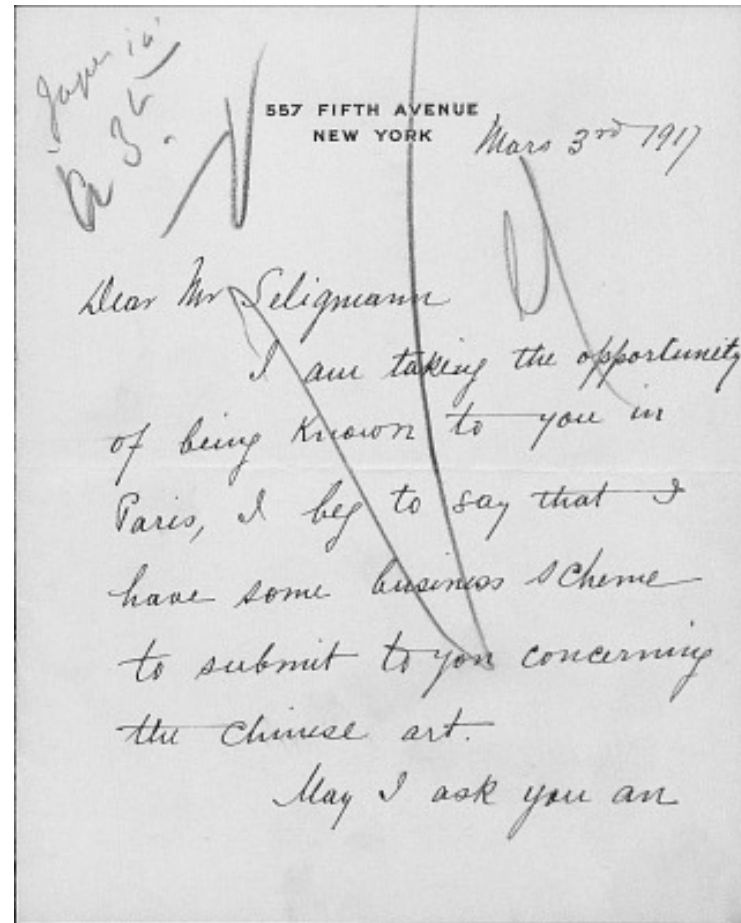 557 FIFTH AVENUE
NEW YORK
Mars 3rd 1917
Dear Mr Seligmann
I am taking the opportunity
of being known to you in
Paris, I beg to say that I
have some business scheme
to submit to you concerning
the chinese art.
May I ask you an